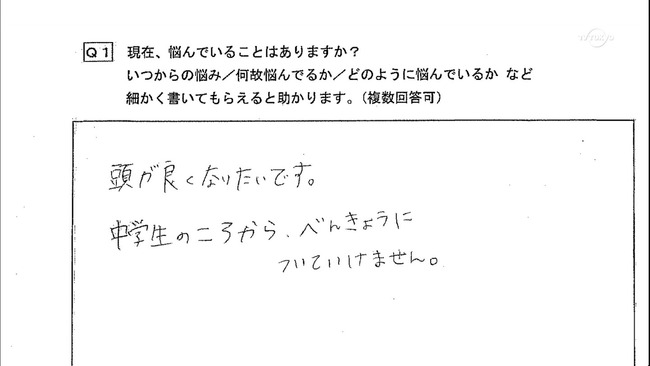 Q1 現在、悩んでいることはありますか？
いつからの悩み／何故悩んでるか／どのように悩んでいるか など
細かく書いてもらえると助かります。（複数回答可）
頭が良くなりたいです。
中学生のころから、べんきょうに
ついていけません。
TV TOKYO